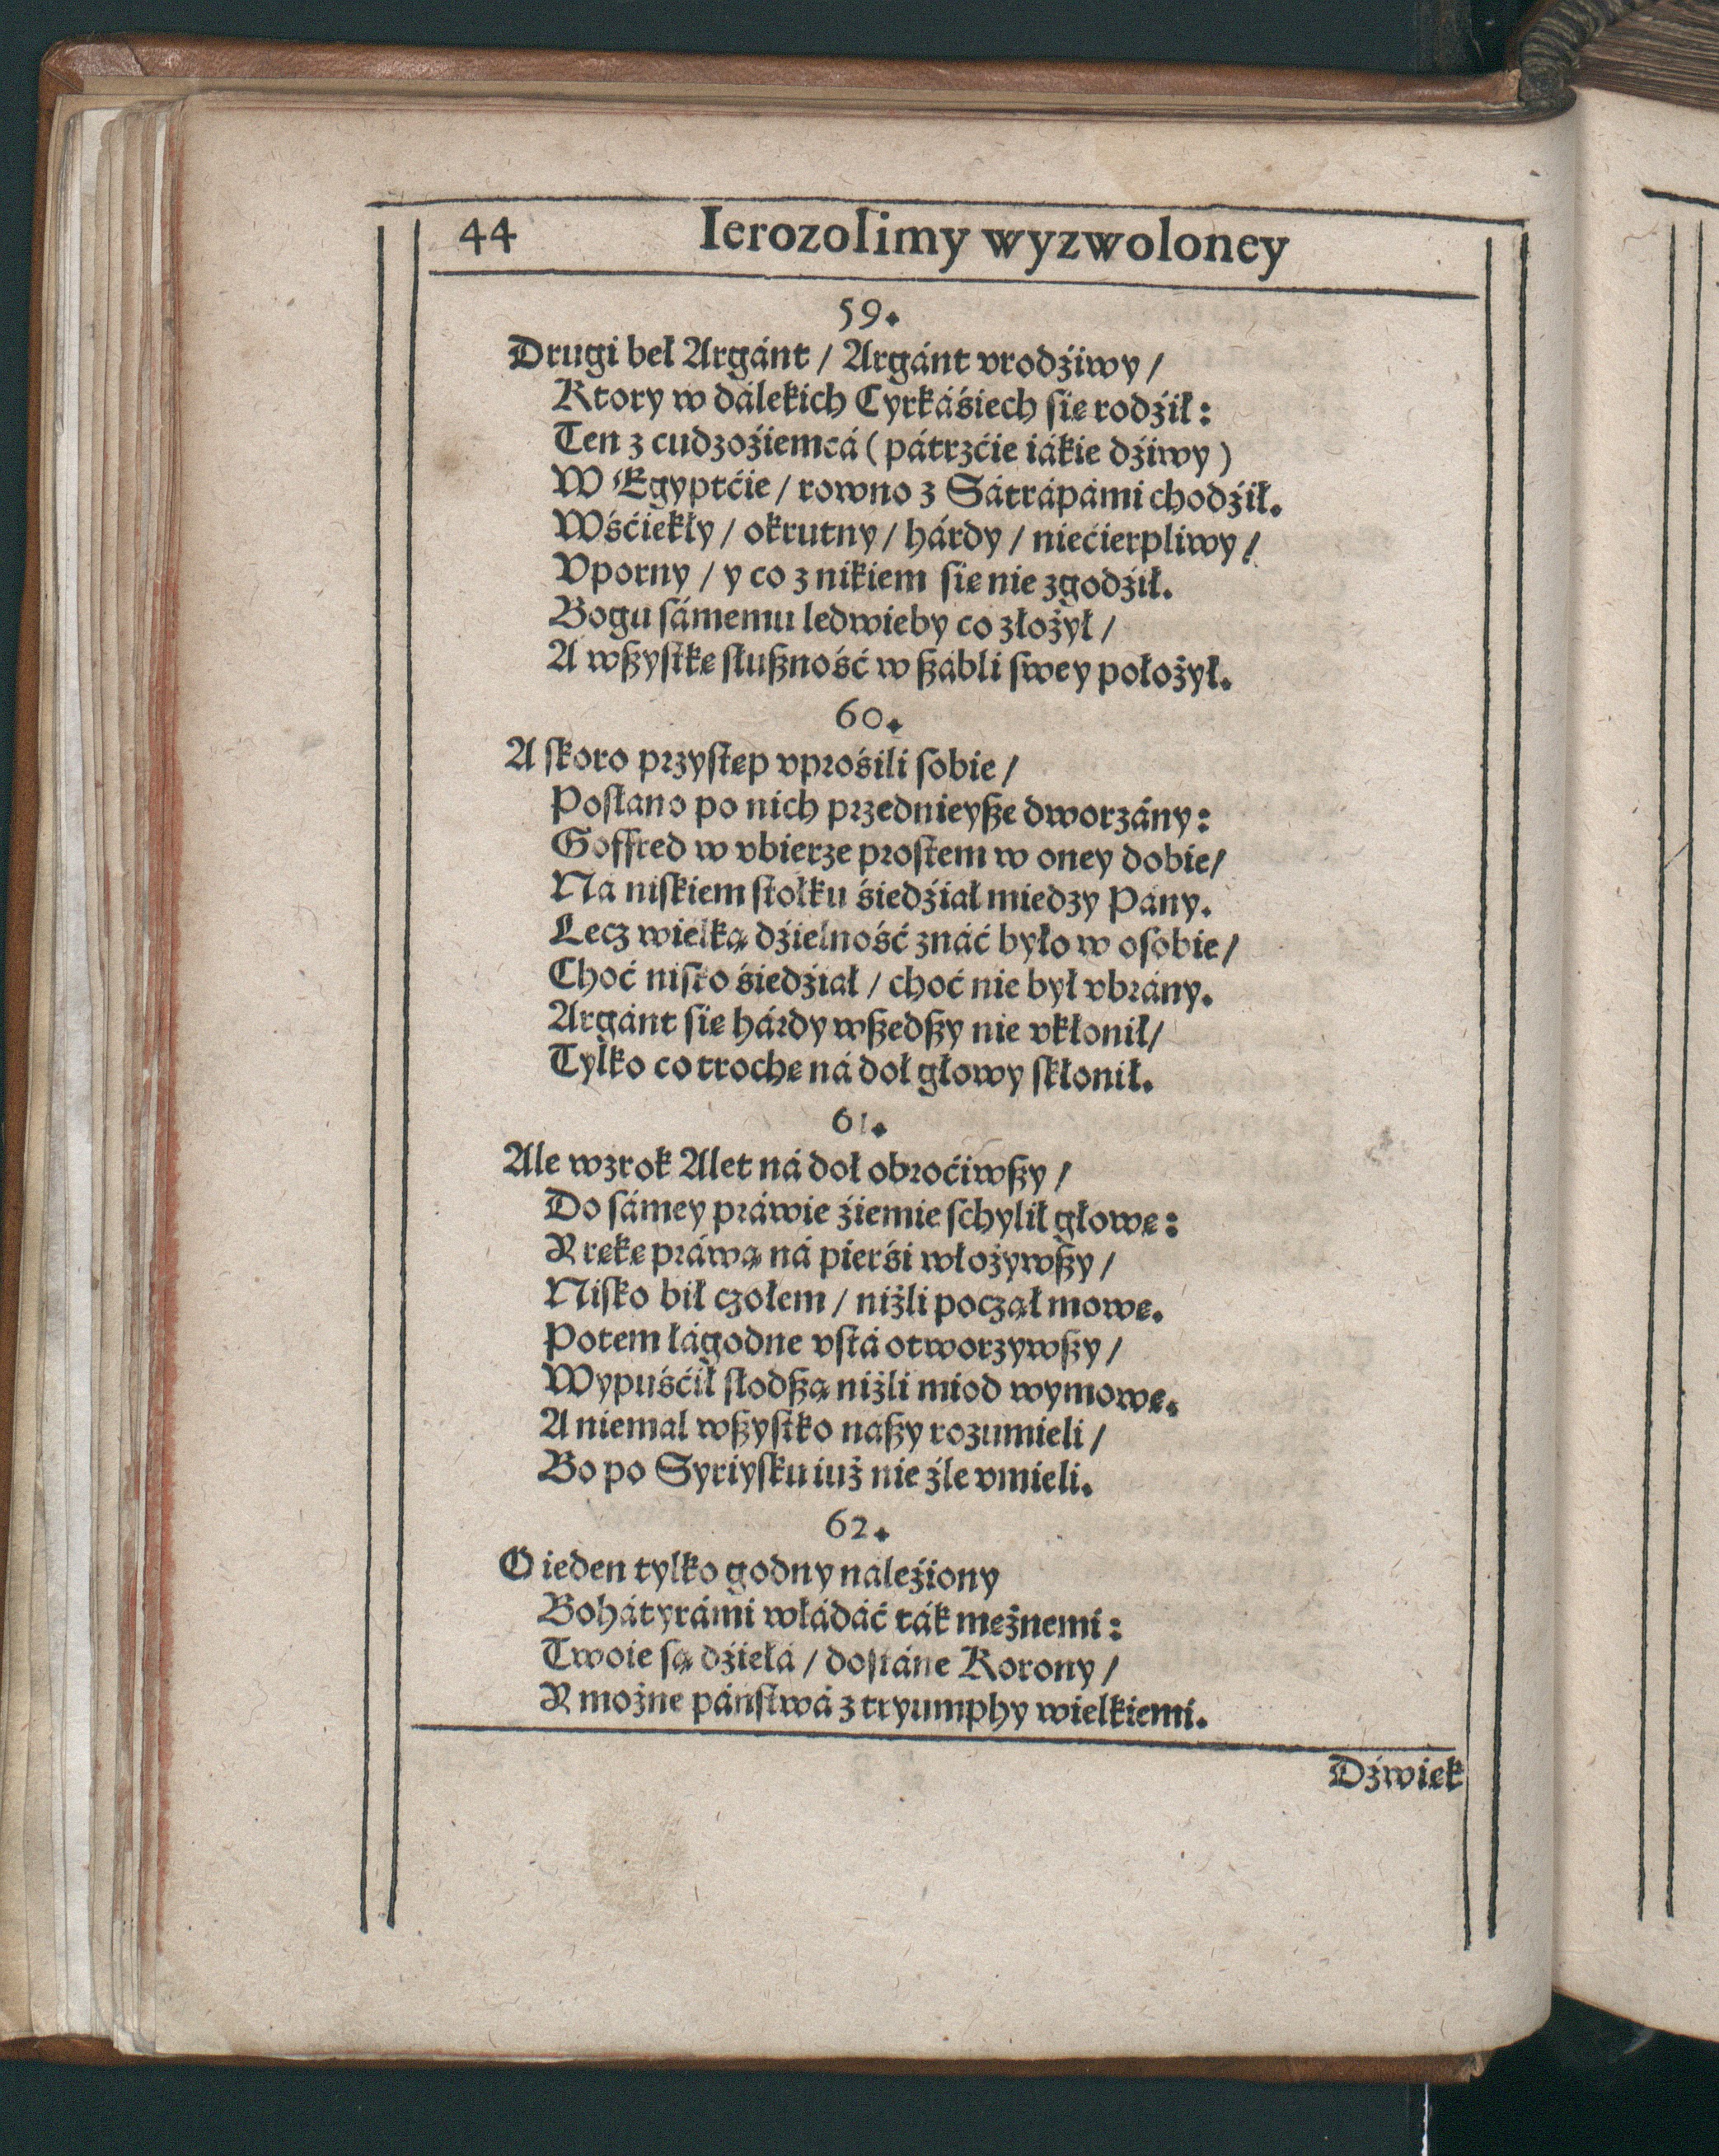 44 Ierozolimy wyzwoloney
59.
Drugi beł Argánt / Argánt vrodźiwy /
Ktory w dálekich Cyrkáśiech się rodźił:
Ten z cudzoźiemcá (pátrzćie iákie dźiwy)
W Egyptćie / rowno z Sátrápámi chodźił.
Wśćiekły / okrutny / hárdy / niećierpliwy /
Vporny / y co z nikiem się nie zgodźił.
Bogu sámemu ledwieby co złożył /
A wszystkę słuszność w szábli swey położył.
60.
A skoro przystęp vprośili sobie /
Posłano po nich przednieysze dworzány:
Goffred w vbierze prostem w oney dobie /
Ná niskiem stołku śiedźiał miedzy Pány.
Lecz wielką dźielność znáć było w osobie /
Choć nisko śiedźiał / choć nie był vbrány.
Argánt się hárdy wszedszy nie vkłonił /
Tylko co trochę ná doł głowy skłonił.
61.
Ale wzrok Alet ná doł obroćiwszy /
Do sámey práwie źiemie schylił głowę:
Y rękę práwą ná pierśi włożywszy /
Nisko bił czołem / niżli począł mowę.
Potem łágodne vstá otworzywszy /
Wypuśćił słodszą niżli miod wymowę.
A niemal wszystko naszy rozumieli /
Bo po Syriysku iuż nie źle vmieli.
62.
O ieden tylko godny naleźiony
Bohátyrámi włádáć ták mężnemi:
Twoie są dźiełá / dostáne Korony /
Y możne páństwá z tryumphy wielkiemi.
Dźwięk